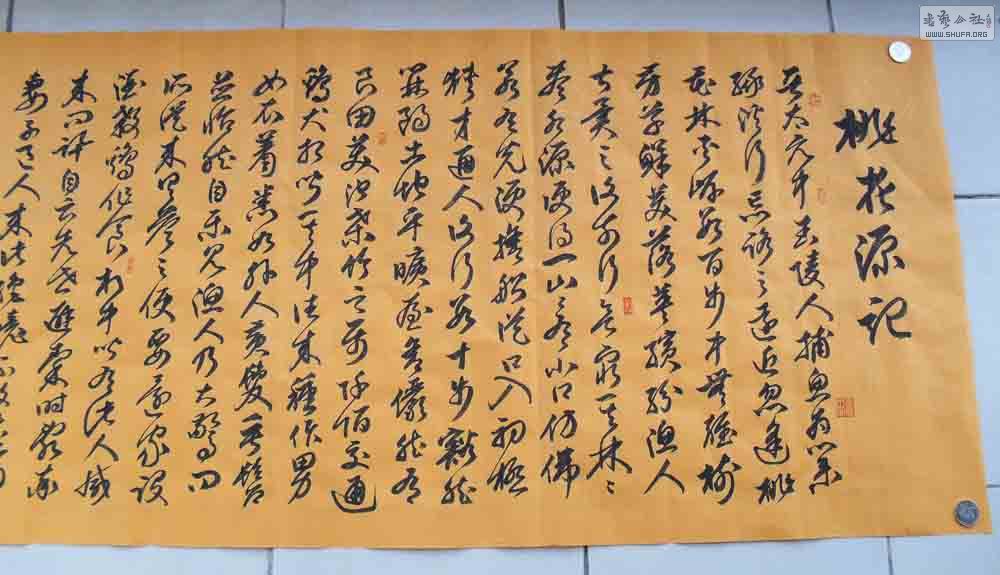 桃花源记
晋太元中武陵人捕鱼为業
缘溪行忘路之遠近忽逢桃
花林夾岸数百步中無雜樹
芳草鮮美落英缤纷渔人
甚異之復前行欲窮其林〻
尽水源便得一山有小口仿佛
若有光便捨船從口入初極
狭才通人復行数十步豁然
開朗土地平曠屋舍儼然有
良田美池桑竹之属阡陌交通
鸡犬相闻其中往来種作男
女衣著悉如外人黄髮垂髫
並怡然自樂见渔人乃大驚问
所從来具答之便要還家設
酒殺鸡作食村中闻有此人咸
来问訊自云先世避秦时亂率
妻子邑人来此绝境不復
书艺公社
WWW.SHUFA.ORG